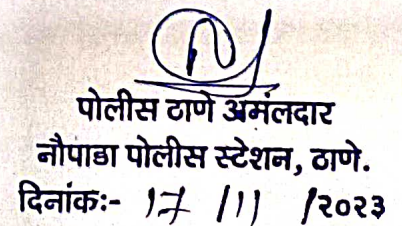 पोलीस ठाणे अमंलदार
नौपाडा पोलीस स्टेशन, ठाणे.
दिनांकः- 17 /11 /२०२३